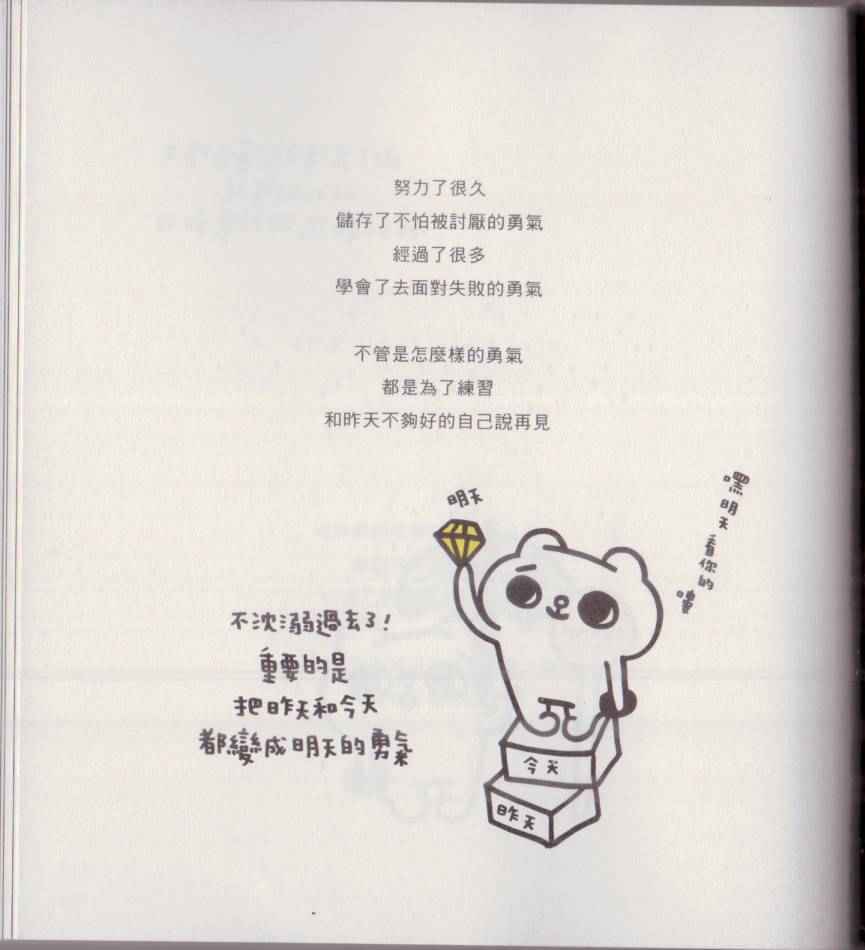 努力了很久
儲存了不怕被討厭的勇氣
經過了很多
學會了去面對失敗的勇氣
不管是怎麼樣的勇氣
都是為了練習
和昨天不夠好的自己說再見
明天
嘿明天看你的嘍
不沈溺過去了!
重要的是
把昨天和今天
都變成明天的勇氣
今天
昨天